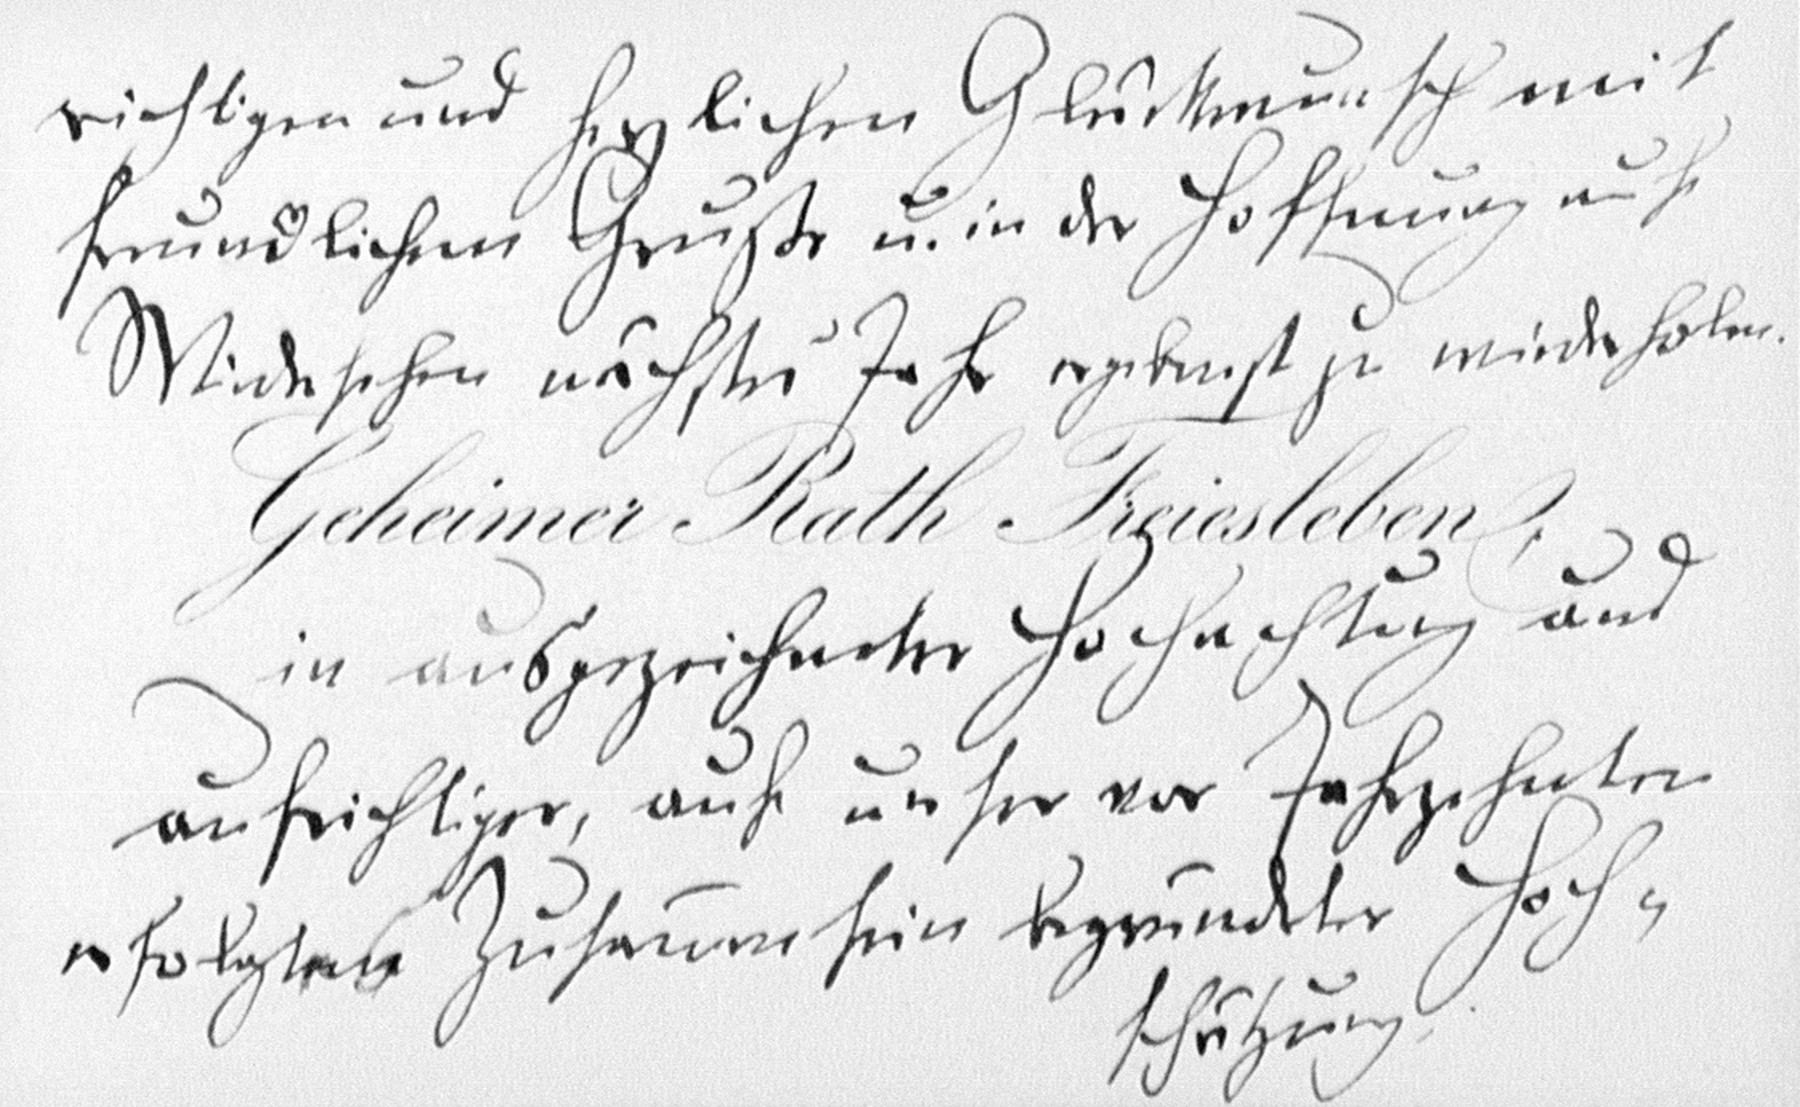 richtigen und herzlichen Glückwunsch mit
freundlichem Gruße u. in der Hoffnung auf
Wiedersehen nächstes Jahr ergebenst zu wiederholen.
Geheimer Rath Freiesleben,
in ausgezeichneter Hochachtung und
aufrichtiger, auf unser vor Jahrzehnten
erfolgtes Zusammensein begründeter Hoch-
schätzung.